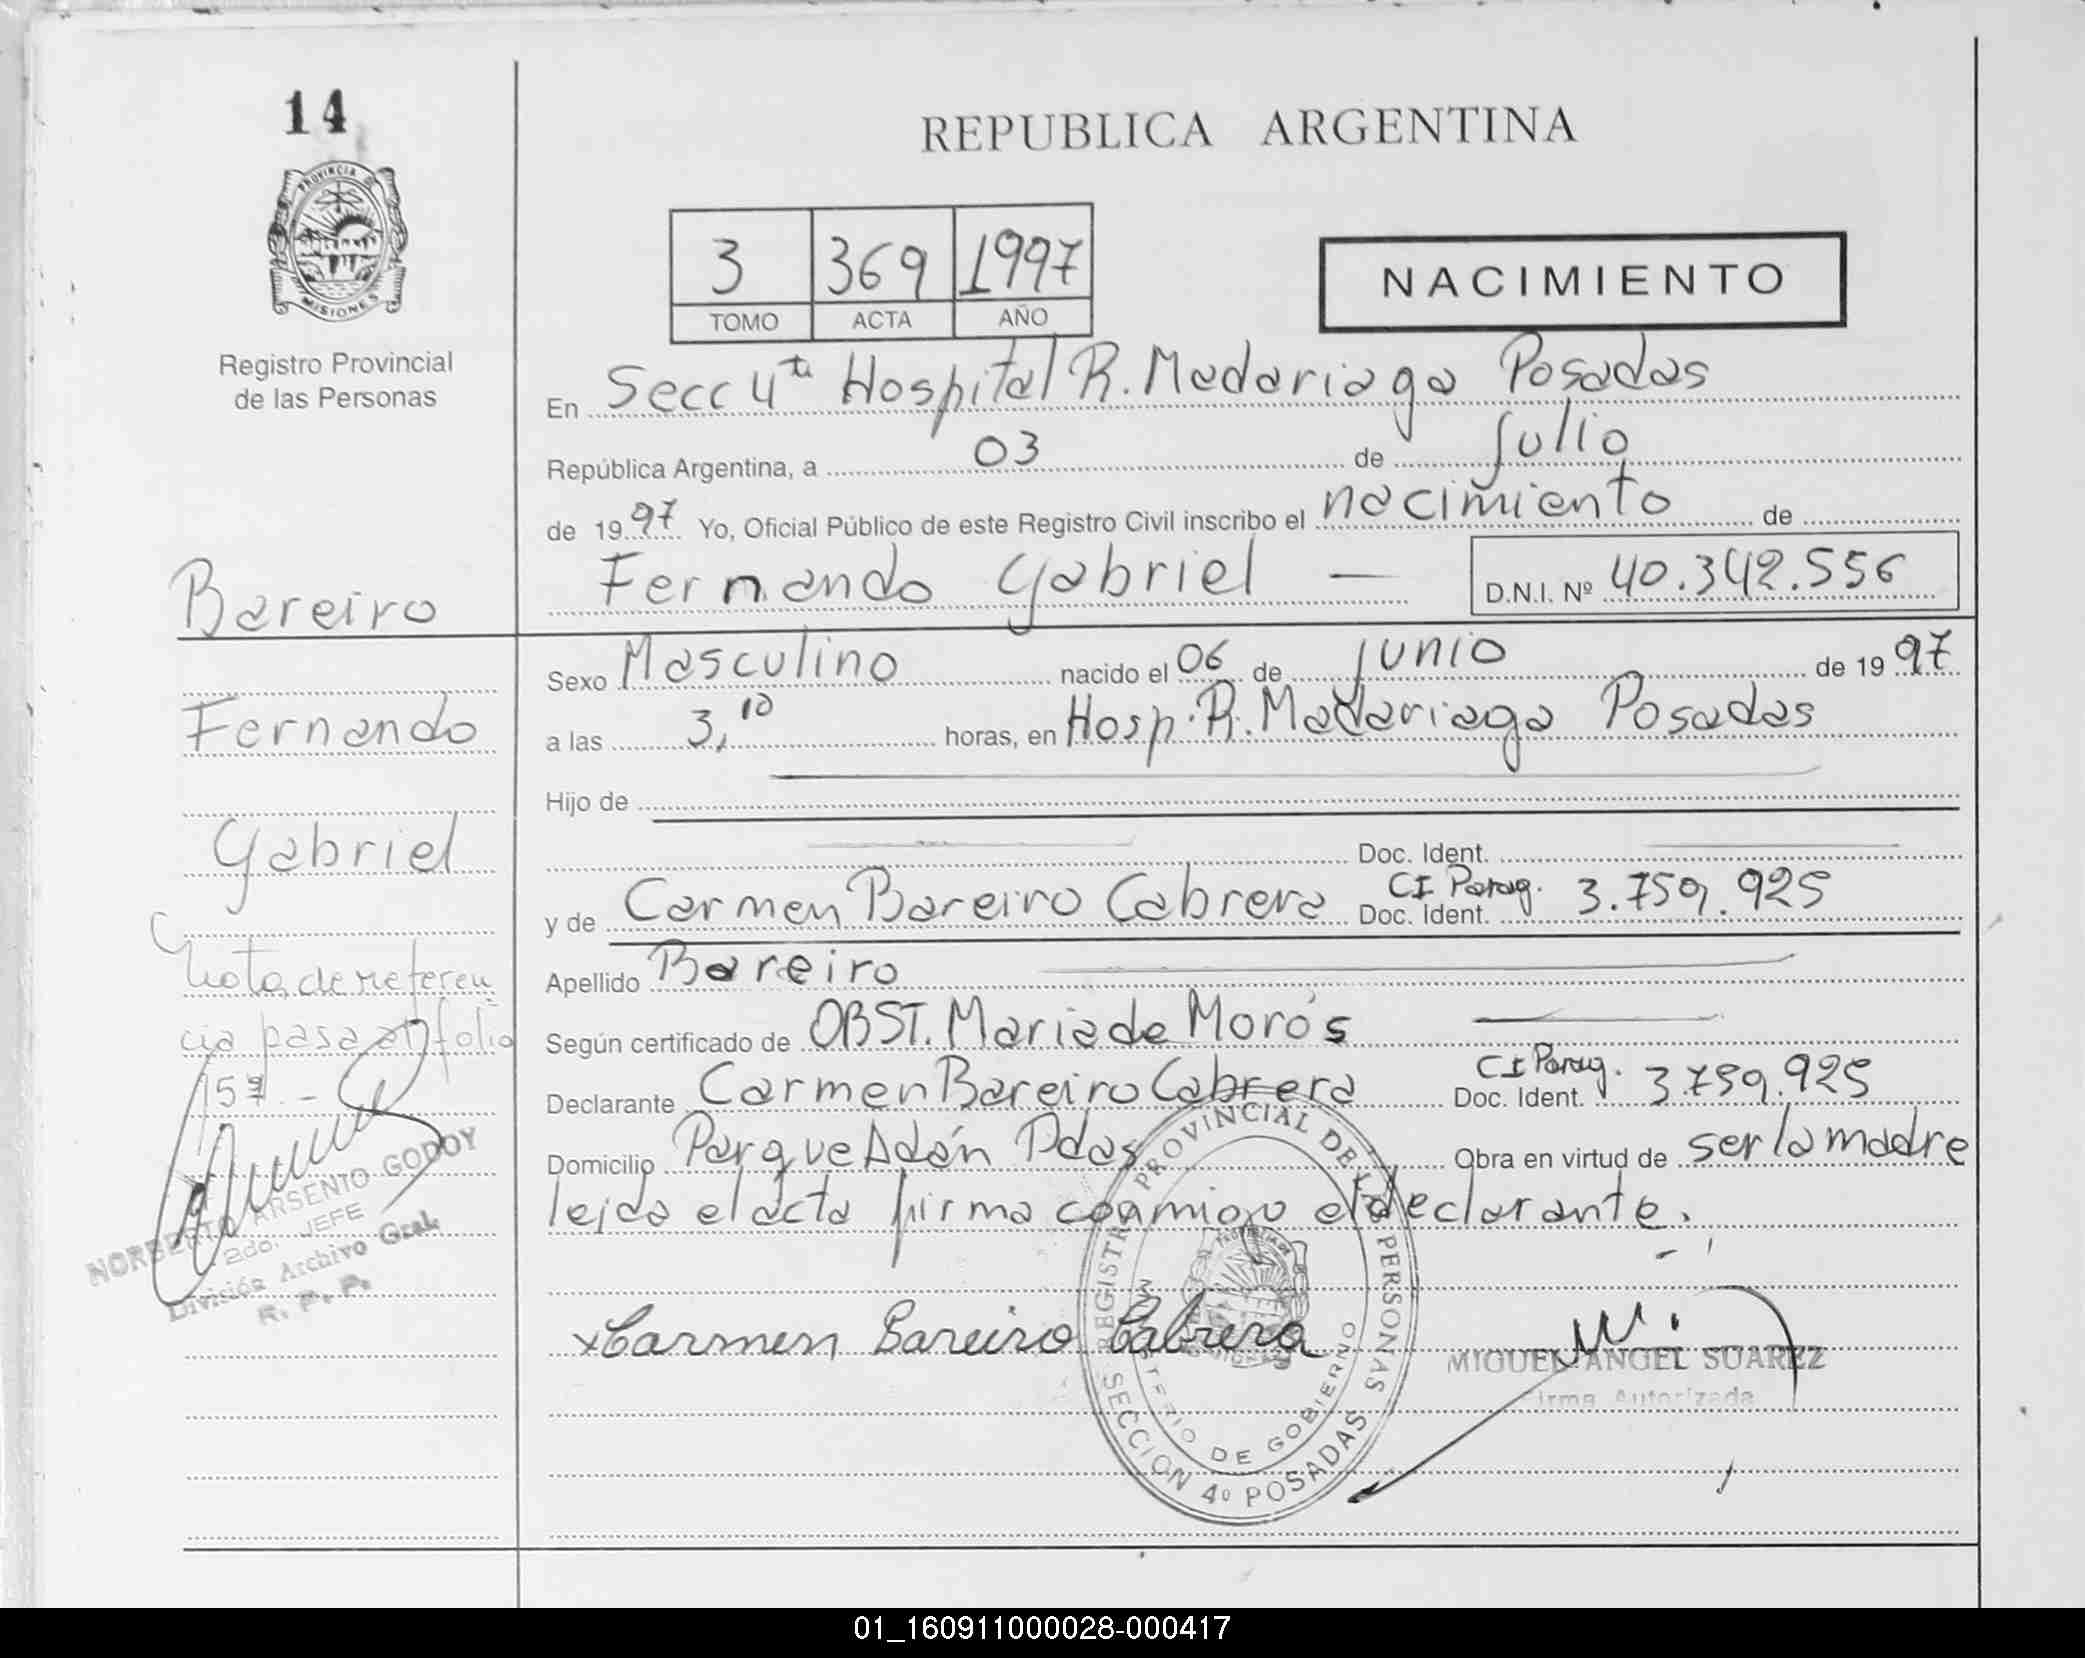 14
PROVINCIA D
MISIONES
Registro Provincial
de las Personas
REPUBLICA ARGENTINA
3 369 1997
TOMO ACTA AÑO
NACIMIENTO
En Secc 4ta Hospital R. Madariaga Posadas
República Argentina, a 03 de Julio
de 1997 Yo, Oficial Público de este Registro Civil inscribo el nacimiento de
Fernando Gabriel —
D.N.I. Nº 40.342.556
Bareiro
Fernando
Gabriel
Nota de referen
cia pasa al folio
159.-
NORBERTO ARSENIO GODOY
2do. JEFE
División Archivo Gral.
R. P. P.
Sexo Masculino nacido el 06 de junio de 1997
a las 3,10 horas, en Hosp. R. Madariaga Posadas
Hijo de
Doc. Ident.
y de Carmen Bareiro Cabrera Doc. Ident. CI Parag. 3.759.925
Apellido Bareiro
Según certificado de OBST. Maria de Morós
Declarante Carmen Bareiro Cabrera Doc. Ident. CI Parag. 3.759.925
Domicilio Parque Adán Pdas Obra en virtud de ser la madre
leida el acta firma conmigo el declarante.
x Carmen Bareiro Cabrera
REGISTRO PROVINCIAL DE LAS PERSONAS
MINISTERIO DE GOBIERNO
SECCION 4º POSADAS
MIGUEL ANGEL SUAREZ
Firma Autorizada
01_160911000028-000417